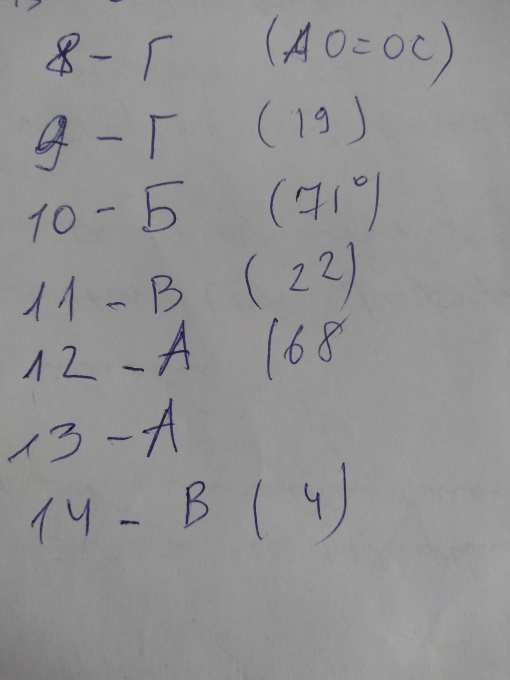 8 - Г (АО=ОС)
9 - Г (19)
10 - Б (71°)
11 - В (22)
12 - А (68
13 - А
14 - В (4)